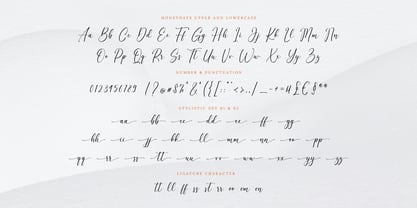 MONEYDATE UPPER AND LOWERCASE
Aa Bb Cc Dd Ee Ff Gg Hh Ii Jj Kk Ll Mm Nn
Oo Pp Qq Rr Ss Tt Uu Vv Ww Xx Yy Zz
NUMBER & PUNCTUATION
0123456789
STYLISTIC SET 01 & 02
aa bb cc dd ee ff gg
hh ii jj kk ll mm nn oo pp
qq rr ss tt uu vv ww xx yy zz
LIGATURE CHARACTER
tt ll ff ss st rr oo om on